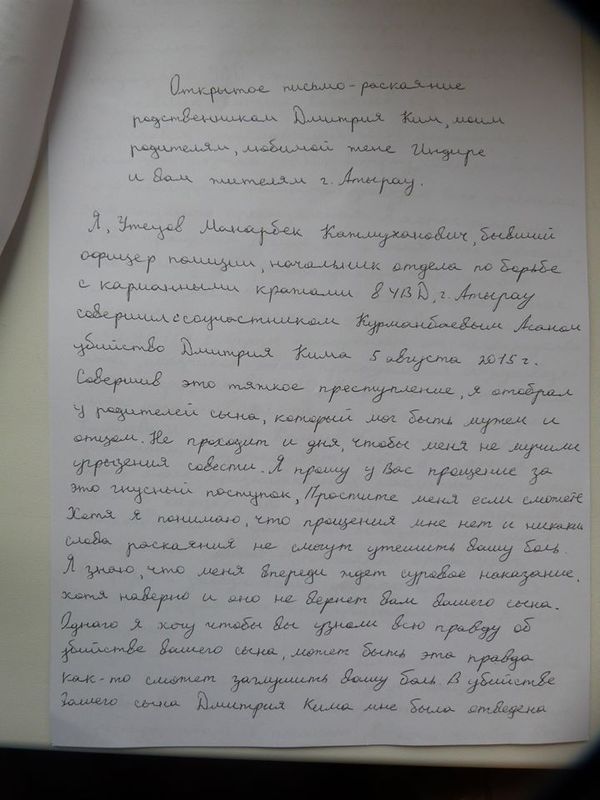 Открытое письмо-раскаяние
родственникам Дмитрия Ким, моим
родителям, любимой жене Индире
и вам жителям г. Атырау.
Я, Утецов Манарбек Катмуханович, бывший
офицер полиции, начальник отдела по борьбе
с карманными кражами в УВД, г. Атырау
совершил с соучастником Курманбаевым Асаном
убийство Дмитрия Кима 5 августа 2015 г.
Совершив это тяжкое преступление, я отобрал
у родителей сына, который мог быть мужем и
отцом. Не проходит и дня, чтобы меня не мучили
угрызения совести. Я прошу у Вас прощение за
это гнусный поступок, Простите меня если сможете
Хотя я понимаю, что прощения мне нет и никакие
слова раскаяния не смогут утешить вашу боль.
Я знаю, что меня впереди ждет суровое наказание,
хотя наверно и оно не вернет вам вашего сына.
Однаго я хочу чтобы вы узнали всю правду об
убийстве вашего сына, может быть эта правда
как-то сможет заглушить вашу боль. В убийстве
вашего сына Дмитрия Кима мне была отведена